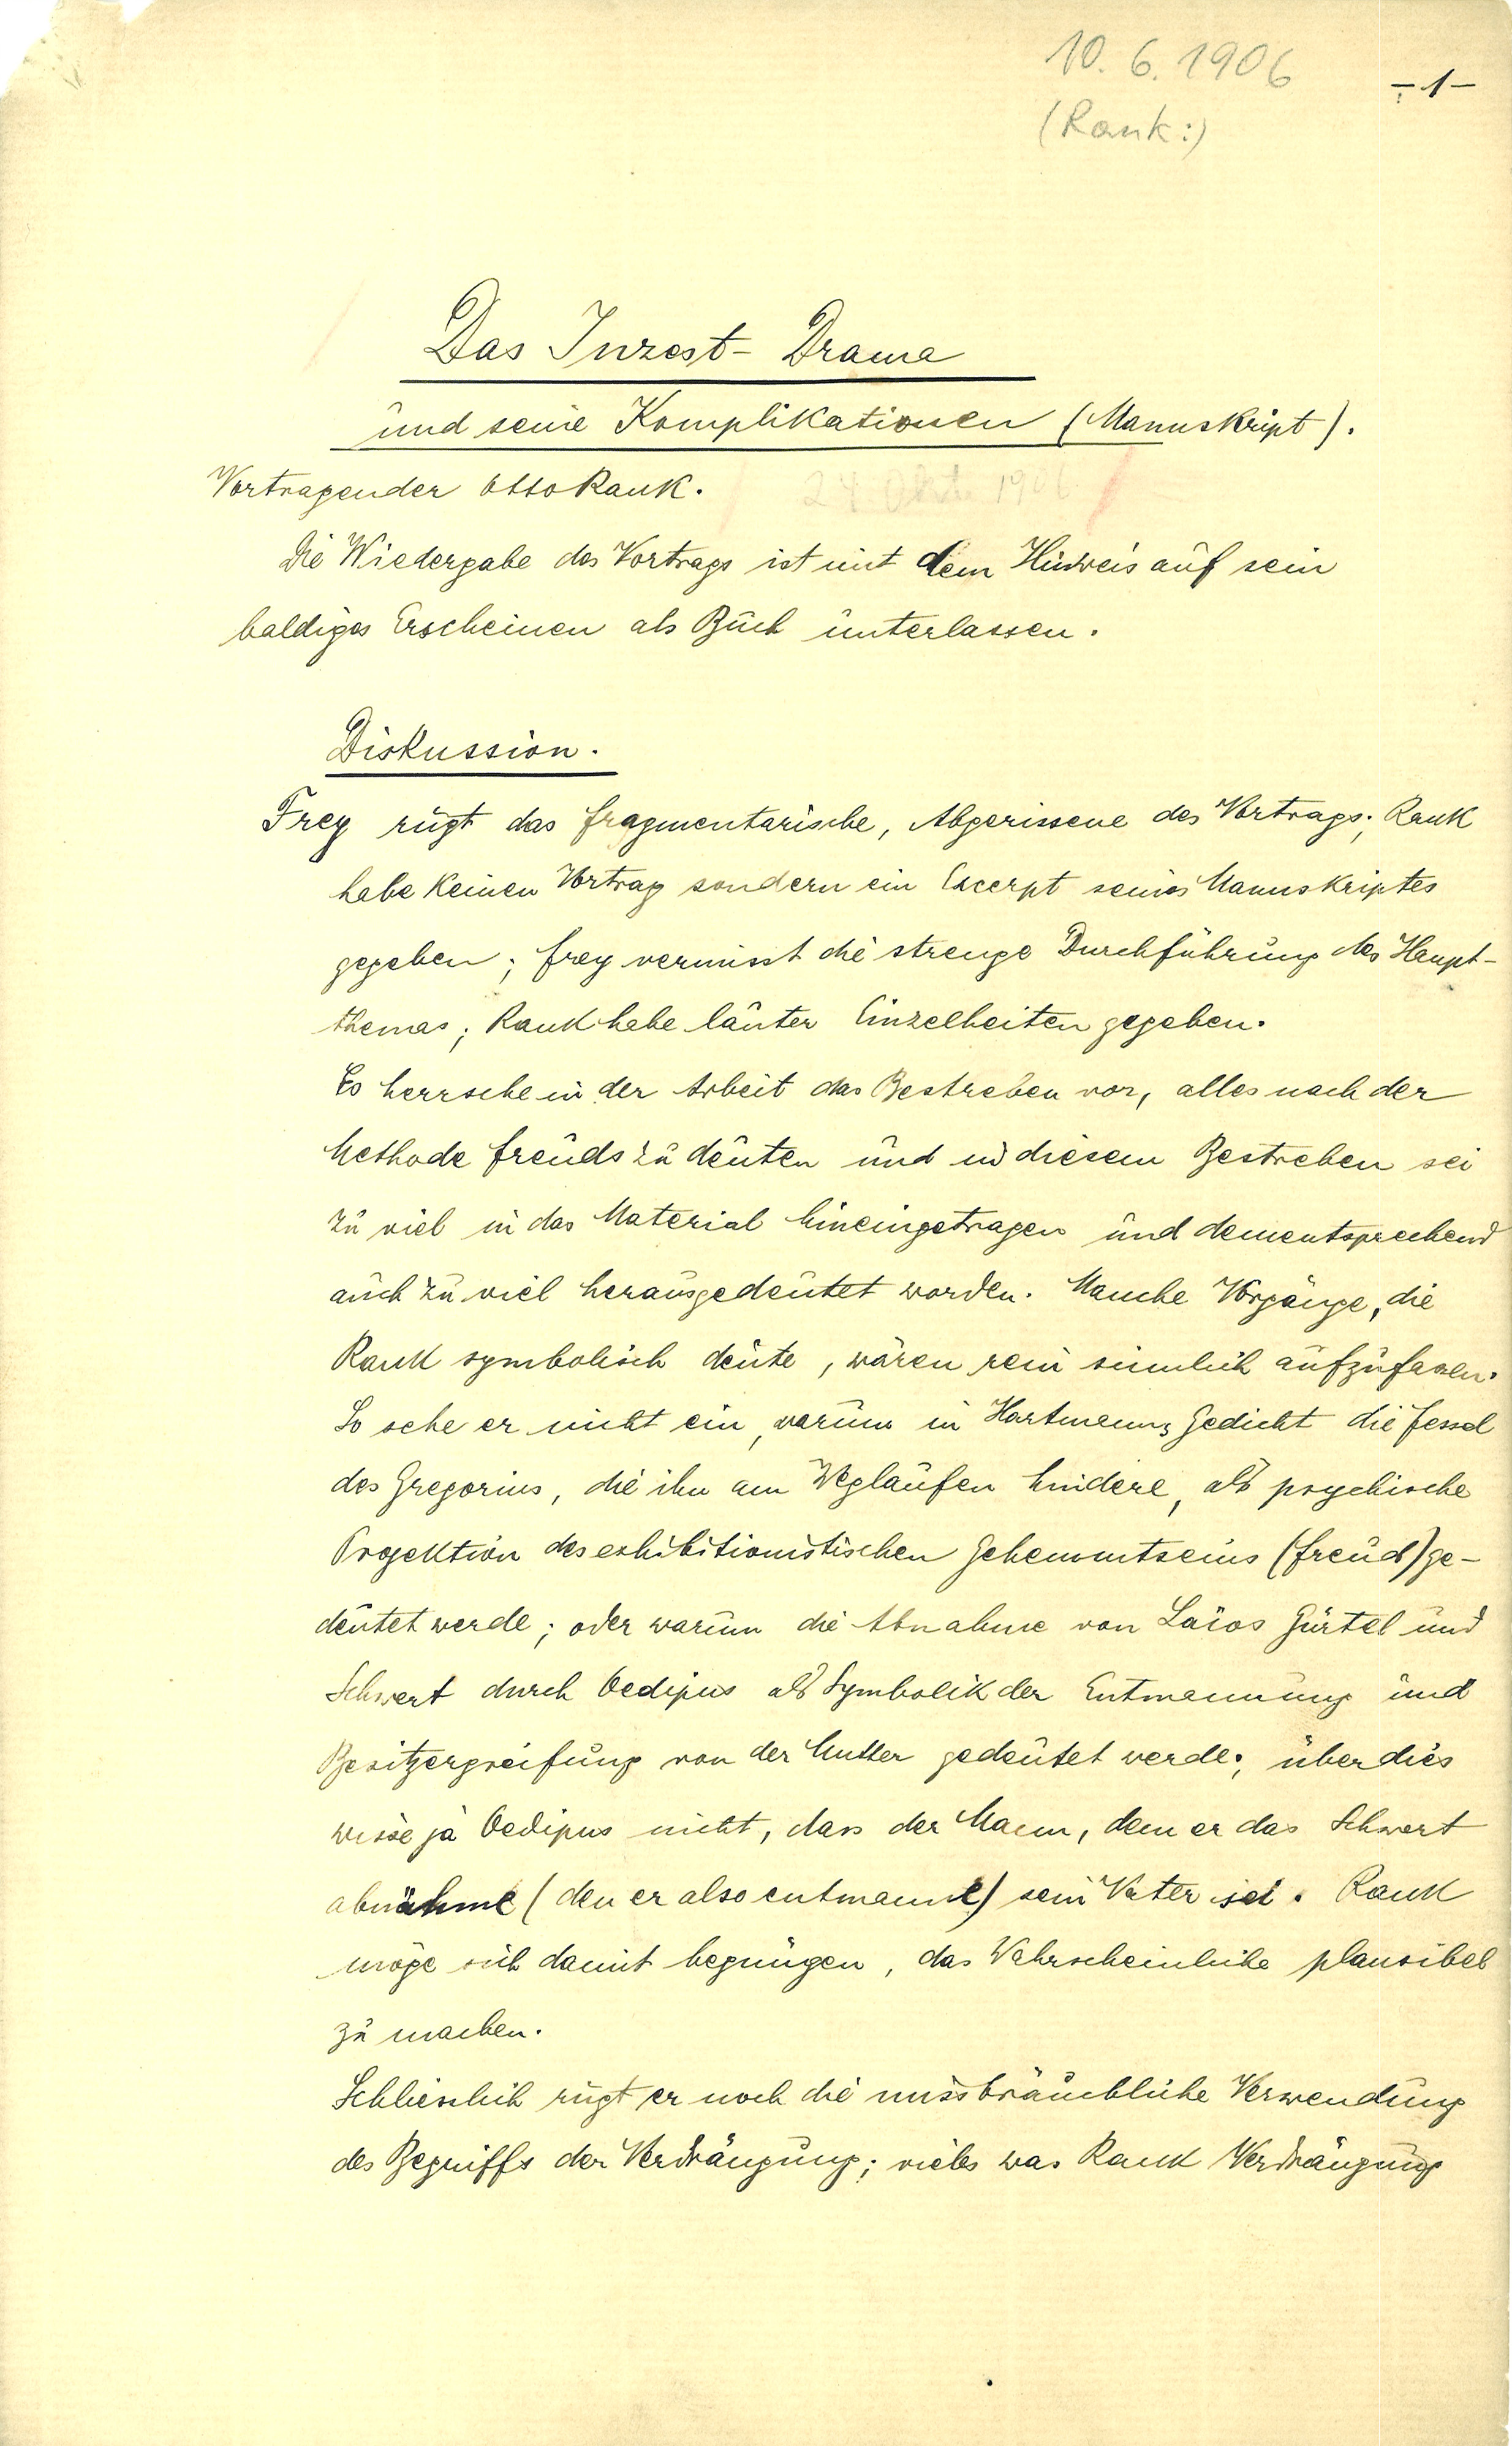 10. 6. 1906
-1-
(Rank:)
Das Inzest- Drama
und seine Komplikationen (Manuskript).
Vortragender Otto Rank.
24 Okt 1906
Die Wiedergabe des Vortrags ist mit dem Hinweis auf sein
baldiges Erscheinen als Buch unterlassen.
Diskussion.
Frey rügt das fragmentarische, Abgerissene des Vortrags; Rank
habe keinen Vortrag sondern ein Excerpt seines Manuskriptes
gegeben; Frey vermisst die strenge Durchführung des Haupt-
themas; Rank habe lauter Einzelheiten gegeben.
Es herrsche in der Arbeit das Bestreben vor, alles nach der
Methode Freuds zu deuten und in diesem Bestreben sei
zu viel in das Material hineingetragen und dementsprechend
auch zu viel herausgedeutet worden. Manche Vorgänge, die
Rank symbolisch deute, wären rein sinnlich aufzufassen.
So sehe er nicht ein, warum in Hartmanns Gedicht die Fessel
des Gregorius, die ihn am Weglaufen hindere, als psychische
Projektion des exhibitionistischen Gehemmtseins (Freud) ge-
deutet werde; oder warum die Abnahme von Laïos Gürtel und
Schwert durch Oedipus als Symbolik der Entmannung und
Besitzergreifung von der Mutter gedeutet werde; überdies
wisse ja Oedipus nicht, dass der Mann, dem er das Schwert
abnähme (den er also entmanne) sein Vater sei. Rank
möge sich damit begnügen, das Wahrscheinliche plausibel
zu machen.
Schliesslich rügt er noch die missbräuchliche Verwendung
des Begriffs der Verdrängung; vieles was Rank Verdrängung